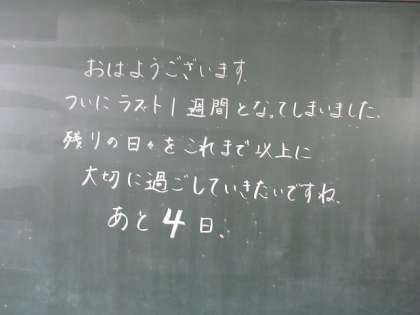 おはようございます.
ついにラスト1週間となってしまいました.
残りの日々をこれまで以上に
大切に過ごしていきたいですね.
あと4日、